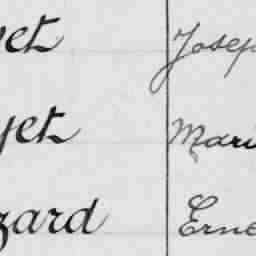 vet Josep
yet Mari
zard Erne